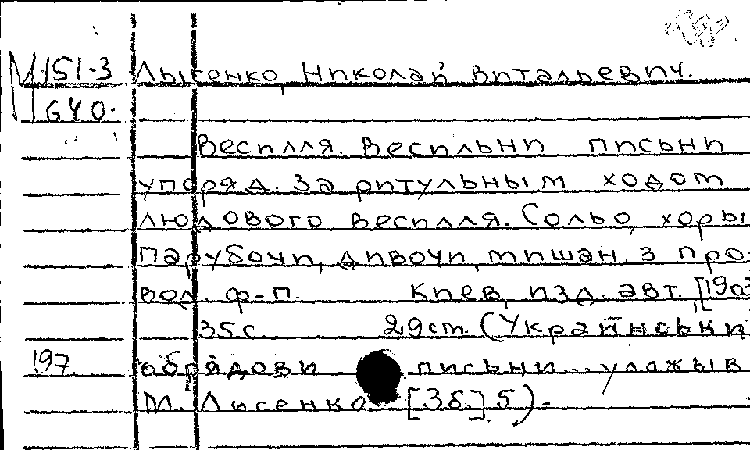 М151-3 Лысенко, Николай Витальевич.
640.
Веспилля. Веспильни письни
упоряд. за ритульным ходом
людового веспилля. Сольо, хоры
парубочи, дивочи, мишан. з про-
вод. ф-п. Киев, изд. авт. [190
35 с. 29 см. (Украйнськи
197. обрядови письни улажыв
М. Лысенко [Зб.] 5).